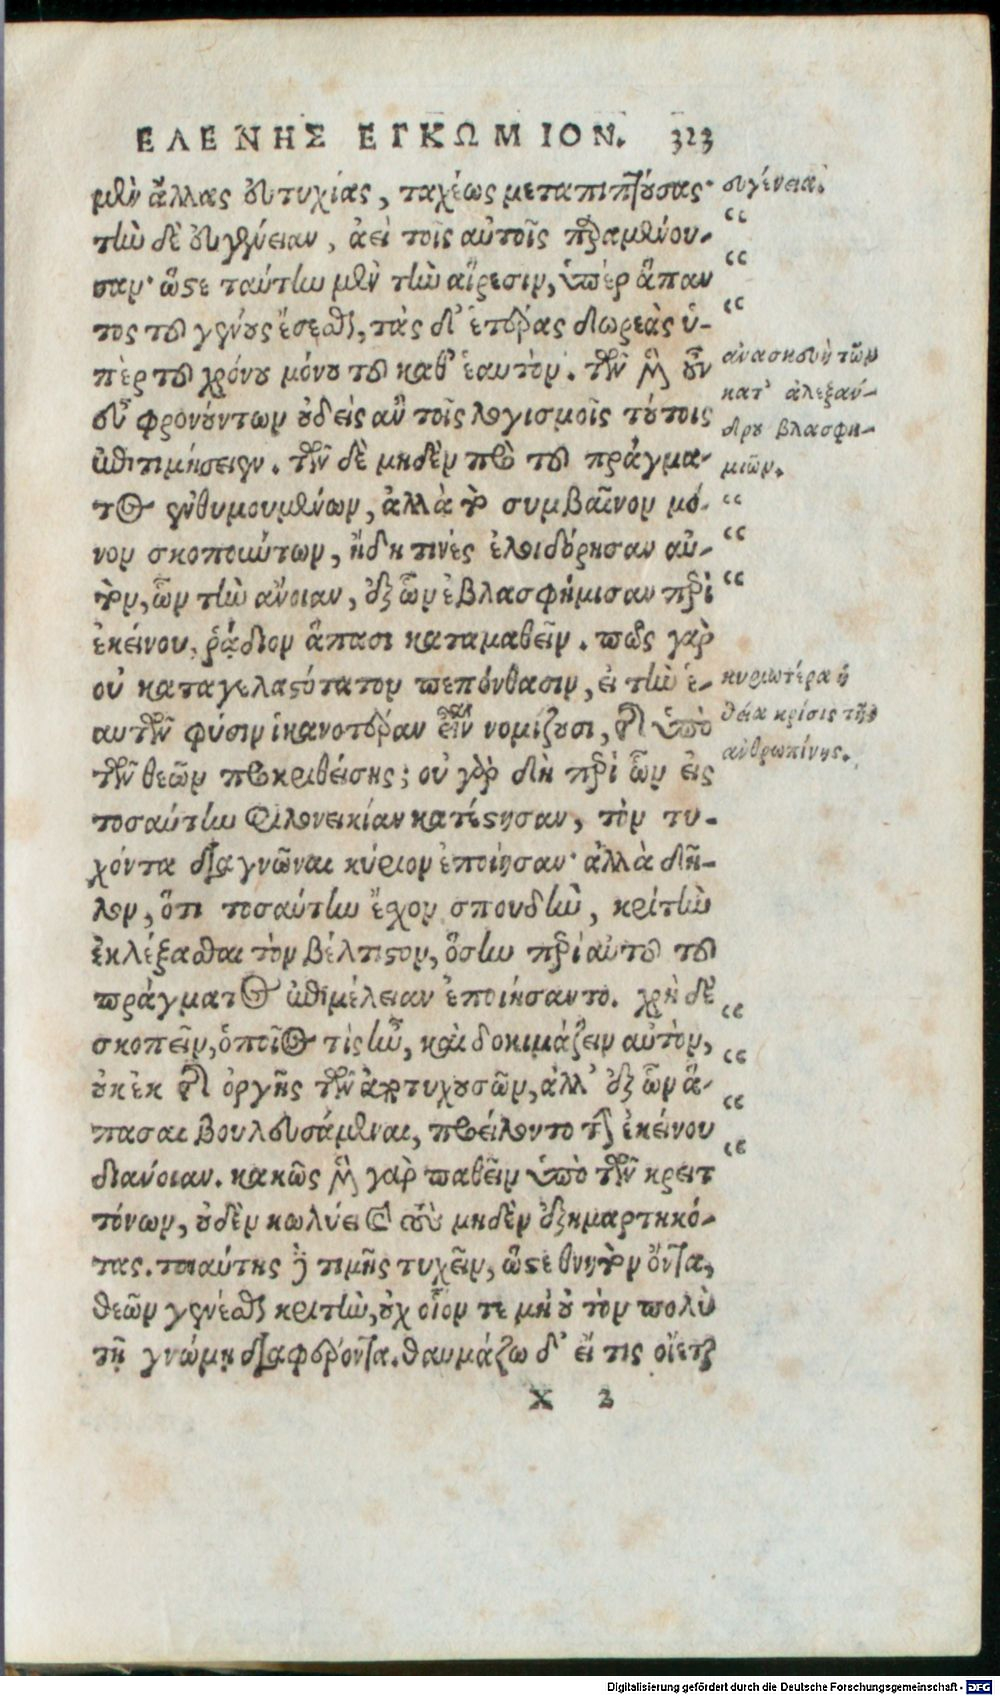 ΕΛΕΝΗΣ ΕΓΚΩΜΙΟΝ. 323
μὲν ἄλλας εὐτυχίας, ταχέως μεταπιπτούσας·
τὴν δὲ εὐγένειαν, ἀεὶ τοῖς αὐτοῖς παραμένου-
σαν· ὥστε ταύτην μὲν τὴν αἵρεσιν, ὑπὲρ ἅπαν
τος τοῦ γένους ἔσεσθαι, τὰς δ' ἑτέρας δωρεὰς ὑ-
πὲρ τοῦ χρόνου μόνου τοῦ καθ' ἑαυτόν. τῶν μὲν οὖν
εὖ φρονούντων οὐδεὶς ἂν τοῖς λογισμοῖς τούτοις
ἐπιτιμήσειεν. τῶν δὲ μηδὲν πρὸ τοῦ πράγμα-
τος ἐνθυμουμένων, ἀλλὰ τὸ συμβαῖνον μό-
νον σκοπουμένων, ἤδη τινὲς ἐλοιδόρησαν αὐ-
τόν, ὧν τὴν ἄνοιαν, ἐξ ὧν ἐβλασφήμισαν περὶ
ἐκείνου, ῥᾴδιον ἅπασι καταμαθεῖν. πῶς γὰρ
οὐ καταγελαστότατον πεπόνθασιν, εἰ τὴν ἑ-
αυτῶν φύσιν ἱκανοτέραν εἶναι νομίζουσι, τῆς ὑπὸ
τῶν θεῶν προκριθείσης; οὐ γὰρ δὴ περὶ ὧν εἰς
τοσαύτην φιλονεικίαν κατέστησαν, τὸν τυ-
χόντα διαγνῶναι κύριον ἐποίησαν· ἀλλὰ δῆ-
λον, ὅτι τοσαύτην ἔχον σπουδὴν, κριτὴν
ἐκλέξασθαι τὸν βέλτιστον, ὅσην περὶ αὐτοῦ τοῦ
πράγματος ἐπιμέλειαν ἐποιήσαντο. χρὴ δὲ
σκοπεῖν, ὁποῖος τίς ἦν, καὶ δοκιμάζειν αὐτὸν,
οὐκ ἐκ τῆς ὀργῆς τῶν ἀποτυχουσῶν, ἀλλ' ἐξ ὧν ἅ-
πασαι βουλευσάμεναι, προείλοντο τὴν ἐκείνου
διάνοιαν. κακῶς μὲν γὰρ παθεῖν ὑπὸ τῶν κρειτ
τόνων, οὐδὲν κωλύει καὶ τοὺς μηδὲν ἐξημαρτηκό-
τας. τοιαύτης δὲ τιμῆς τυχεῖν, ὥστε θνητὸν ὄντα,
θεῶν γενέσθαι κριτὴν, οὐχ οἷόν τε μὴ οὐ τὸν πολὺ
τῇ γνώμῃ διαφέροντα. θαυμάζω δ' εἴ τις οἴεται
X 2
εὐγένεια.
ἀνασκευὴ τῶν
κατ' ἀλεξάν-
δρου βλασφη-
μιῶν.
κυριωτέρα ἡ
θεία κρίσις τῆς
ἀνθρωπίνης.
Digitalisierung gefördert durch die Deutsche Forschungsgemeinschaft - DFG